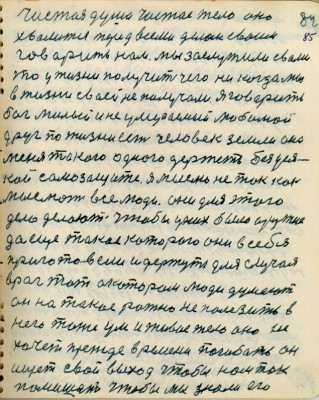 чистая душа чистае тело оно 84
хвалитця перед всеми делам своим 85
говорить нам. мы заслужили свами
это у жизни получить чего ни когда мы
в жизни своей не получали. Я говорить
бог милый и не умераемый любимой
друг по жизни есть человек земли она
меня такого одного держеть без вся-
кой самозащите. я мыслю не так как
мыслють все люди. они для этого
дело делають чтобы у них было оружие
да еще такое которого они в себя
приготовели и держуть для случая
враг тот а котором люди думають
он на такае ражно не полезить в
него тоже ум и живое тело оно не
хочет прежде времени погибать он
ищет свой выход чтобы нам так
помешать чтобы мы знали его